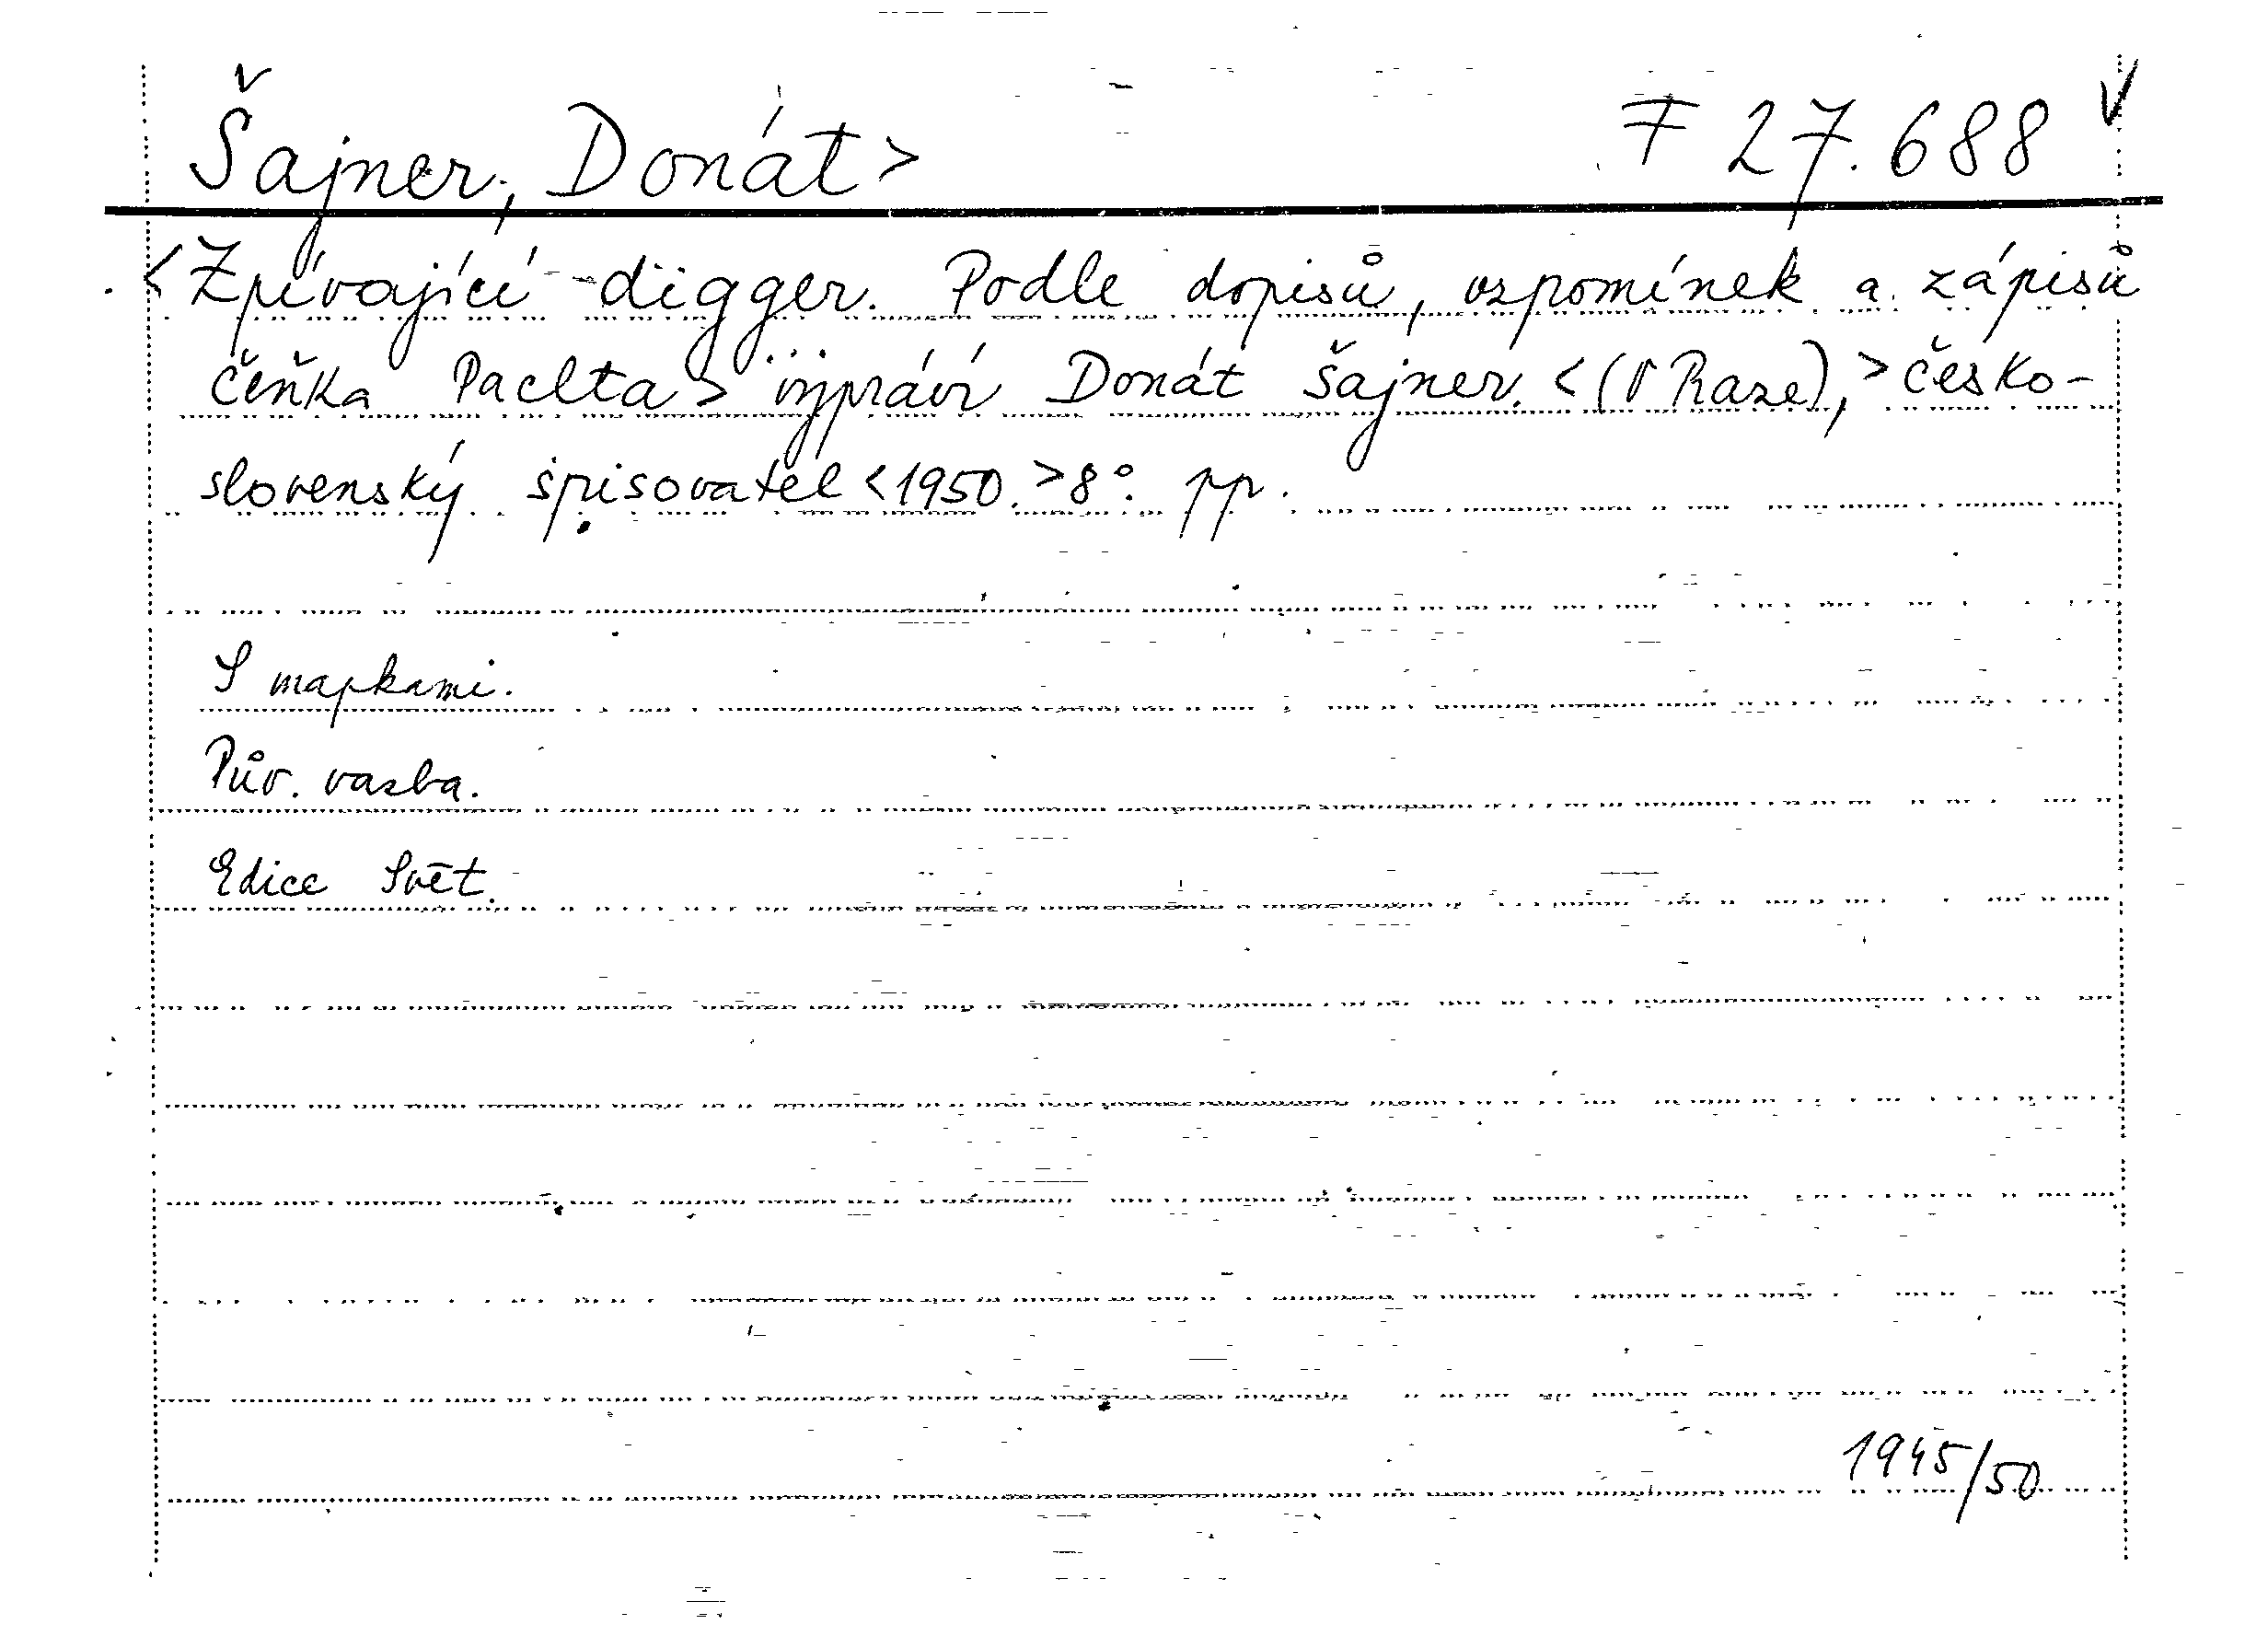 Šajner, Donát> F 27.688 V
<Zpívající digger. Podle dopisů, vzpomínek a zápisů
Čeňka Paclta> vypráví Donát Šajner. <(V Praze),> Česko-
slovenský spisovatel <1950.> 8°. pp.
S mapkami.
Pův. vazba.
Edice Svět.
1945/50